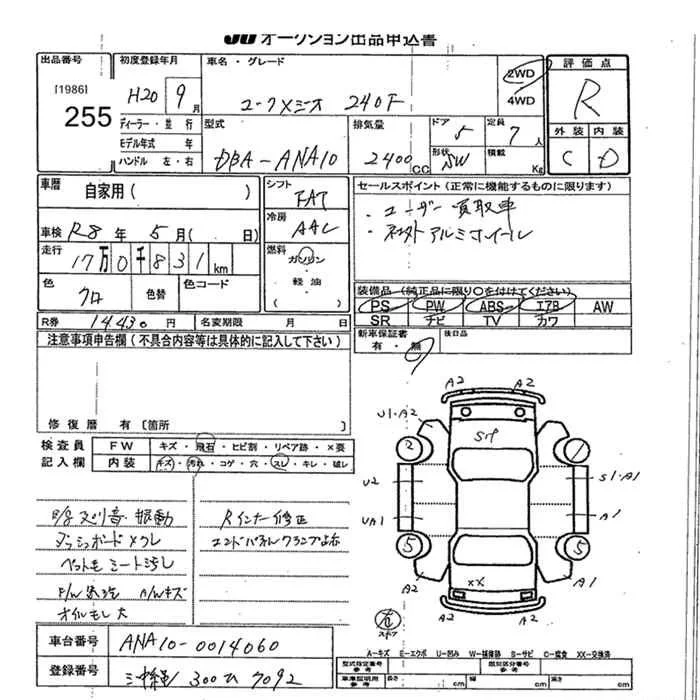 JU オークション出品申込書
出品番号 初度登録年月 車名・グレード 評価点
[1986]
255
H20 9月
マークXジオ 240F
2WD
4WD
R
ディーラー・並行
モデル年式 年
ハンドル 左・右
型式
DBA-ANA10
排気量
2400 CC
ドア 5
形状 SW
定員 7人
積載 Kg
外装 内装
C D
車歴 自家用( )
シフト FAT
セールスポイント(正常に機能するものに限ります)
・ユーザー買取車
・社外アルミホイール
車検 R8年 5月( 日)
冷房 AAC
走行 17万0千831km
燃料 ガソリン・軽油・( )
色 クロ 色替 色コード
装備品(純正品に限り○を付けてください)
PS PW ABS エアB AW
SR ナビ TV カワ
R券 14430円 名変期限 月 日
新車保証書 有・無
検自品
注意事項申告欄(不具合内容等は具体的に記入して下さい)
修復歴 有〔箇所 〕
検査員記入欄
FW キズ・飛石・ヒビ割・リペア跡・×要
内装 キズ・汚れ・コゲ・穴・スレ・キレ・破レ
ダッシュボードメクレ
Rインナー修正
オイルモレ大
A2 A2
U1・A2
2
Sリ
1
U2
S1・A1
UA1
A1
5 5
XX
A2 A1
A2 A2
右
スペア
A-キズ E-エクボ U-凹み W-補修跡 S-サビ C-腐食 XX-交換済
車台番号 ANA10-0014060
登録番号 300 7092
型式指定番号 参考 類別区分番号 参考
車庫証明用 参考 長さ cm 幅 cm 高さ cm